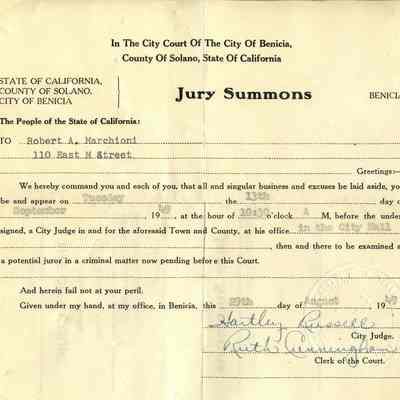 In The City Court Of The City Of Benicia,
County Of Solano, State Of California
STATE OF CALIFORNIA,
COUNTY OF SOLANO,
CITY OF BENICIA
Jury Summons
BENICI
The People of the State of California:
TO Robert A. Marchioni
110 East M Street
Greetings:—
We hereby command you and each of you, that all and singular business and excuses be laid aside, yo
be and appear on Tuesday the 13th day o
September 1949, at the hour of 10:30 o'clock A M, before the under
signed, a City Judge in and for the aforesaid Town and County, at his office in the City Hall
, then and there to be examined a
a potential juror in a criminal matter now pending before this Court.
And herein fail not at your peril.
Given under my hand, at my office, in Benicia, this 29th day of August, 1949
Hartley Russell
City Judge.
Ruth Cunningham
Clerk of the Court.